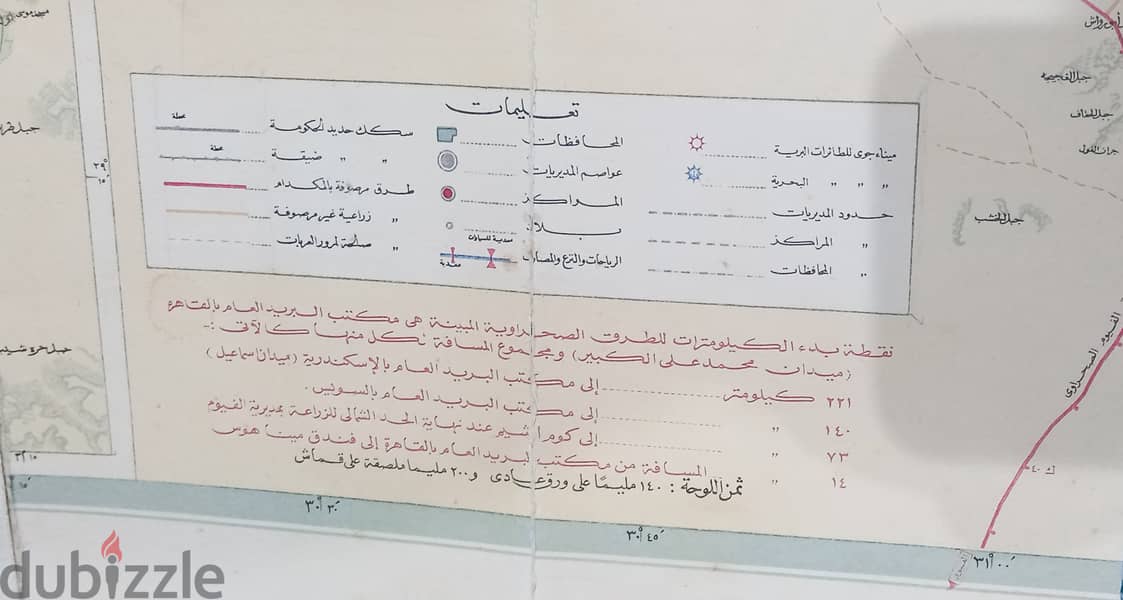 تعليمات
ميناء جوى للطائرات البرية
" " " البحرية
حدود المديريات
" المراكز
" المحافظات
المحافظات
عواصم المديريات
المراكز
بلاد
الرياحات والترع والمصارف
محطة
سكك حديد الحكومة
محطة
" " ضيقة
طرق مرصوفة بالمكدام
" زراعية غير مرصوفة
" صالحة لمرور العربات
نقطة بدء الكيلومترات للطرق الصحراوية المبينة هى مكتب البريد العام بالقاهرة
(ميدان محمد على الكبير) ومجموع المسافة لكل منها كالآتى :-
٢٢١ كيلومتر إلى مكتب البريد العام بالإسكندرية (ميدان اسماعيل)
١٤٠ " إلى مكتب البريد العام بالسويس .
٧٣ " إلى كوم اوشيم عند نهاية الحد الشمالى للزراعة بمديرية الفيوم
١٤ " المسافة من مكتب البريد العام بالقاهرة إلى فندق مينا هوس
ثمن اللوحة : ١٤٠ مليمًا على ورق عادى و ٢٠٠ مليما ملصقة على قماش
أبو رواش
جبل الخشب
الفيوم الصحراوى
ك ٤٠
٢٩° ١٥′
٣٠° ٣٠′
٣٠° ٤٥′
٣١° ٠٠′
dubizzle